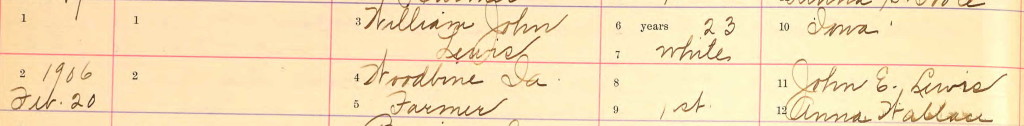 1 1 3 William John 6 years 23 10 Iowa
Lewis 7 White
2 1906 2 4 Woodbine Ia. 8 11 John E. Lewis
Feb. 20 5 Farmer 9 1st. 12 Anna Wallace